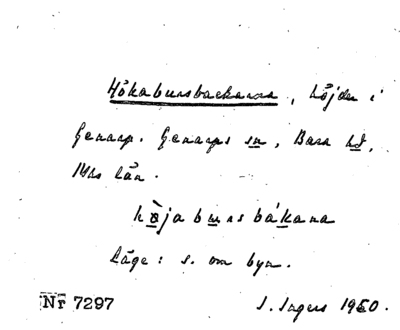 Hökabursbackarna, höjder i
Genarp. Genarps sn, Bara hd,
Mhs län.
hø̀jabursbákana
Läge: s. om byn.
Nr 7297 I. Ingers 1950.